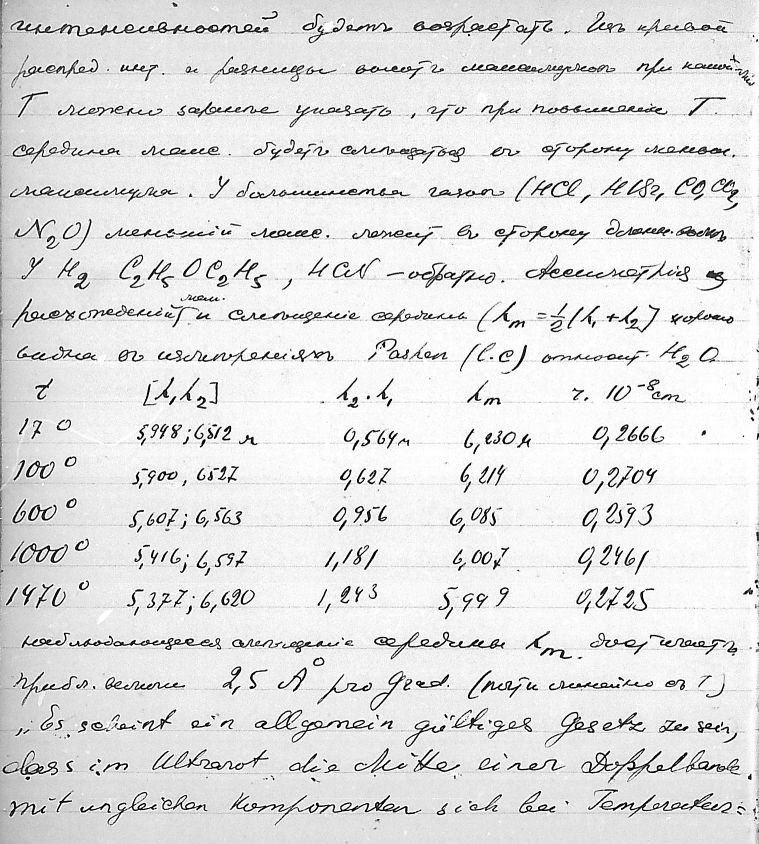 интенсивностей будетъ возрастать. Изъ кривой
распред. инт. и разницы высотъ максимумовъ при какой-либо
T можно заранѣе указать, что при повышеніи T.
середина макс. будетъ смѣщаться въ сторону меньш.
максимума. У большинства газовъ (HCl, HBr, CO, CO2,
N2O) меньшій макс. лежитъ въ сторону длинн. волнъ
У H2 C2H5OC2H5, HCN – обратно. Ассиметрія
расхожденій мак. и смѣщеніе середины (λm = 1/2 [λ1 + λ2] хорошо
видна въ измѣреніяхъ Pashen (l.c) относит. H2O.
t [λ1 λ2] λ2 - λ1 λm r. 10^-8 cm
17° 5,948; 6,512 μ 0,564 μ 6,230 μ 0,2666
100° 5,900, 6527 0,627 6,214 0,2704
600° 5,607; 6,563 0,956 6,085 0,2593
1000° 5,416; 6,597 1,181 6,007 0,2461
1470° 5,377; 6,620 1,243 5,999 0,2725
наблюдающееся смѣщеніе середины λm достигаетъ
прибл. велич 2,5 Å pro Grad. (почти линейно съ T)
„Es scheint ein allgemein gültiges Gesetz zu sein,
dass im Ultrarot die Mitte einer Doppelbande
mit ungleichen Komponenten sich bei Temperatur=